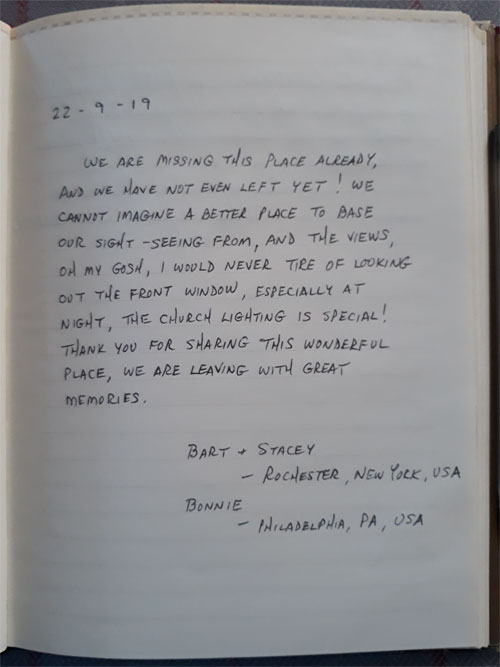 22-9-19
WE ARE MISSING THIS PLACE ALREADY,
AND WE HAVE NOT EVEN LEFT YET! WE
CANNOT IMAGINE A BETTER PLACE TO BASE
OUR SIGHT-SEEING FROM, AND THE VIEWS,
OH MY GOSH, I WOULD NEVER TIRE OF LOOKING
OUT THE FRONT WINDOW, ESPECIALLY AT
NIGHT, THE CHURCH LIGHTING IS SPECIAL!
THANK YOU FOR SHARING THIS WONDERFUL
PLACE, WE ARE LEAVING WITH GREAT
MEMORIES.
BART + STACEY
- ROCHESTER, NEW YORK, USA
BONNIE
- PHILADELPHIA, PA, USA